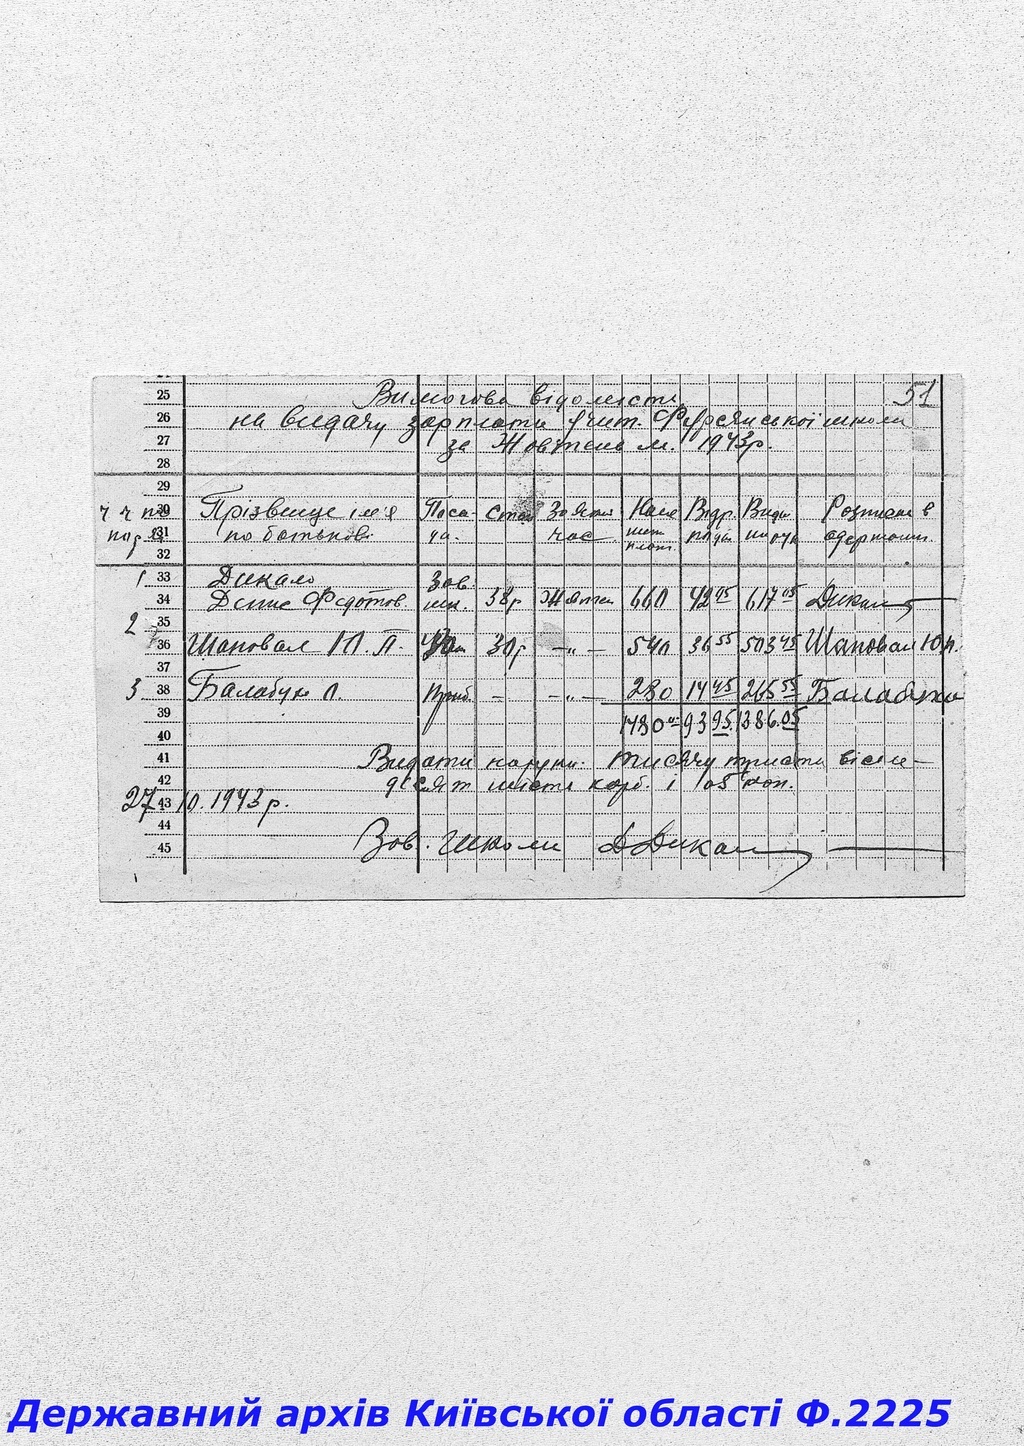 51
25 Вимогова відомість
26 на видачу зарплати учит. Фурсянської школи
27 за Жовтень м. 1943р.
28
29
30 ч ч по Прізвище ім'я Поса- Стаж За який Нале Відр. Видан Розписка в
31 пор. по батькові да. час жит рахув на одержан.
32 плат.
33 1 Дикало Зав.
34 Денис Федотов. шк. 38р Жовтен 660 42 95 617 05 Дикало
35 2
36 Шаповал Ю. П. Уч 30р -"- 540 36 55 503 45 Шаповал Ю.П.
37
38 3 Балабун Л. Приб. - -"- 280 14 45 265 55 Балабуха
39 1480 93.95 1386.05
40
41 Видати на руки тисячу триста вісім-
42 десят шість карб. і 05 коп.
43 27 10. 1943 р.
44
45 Зав. школи Д Дикал
Державний архів Київської області Ф.2225